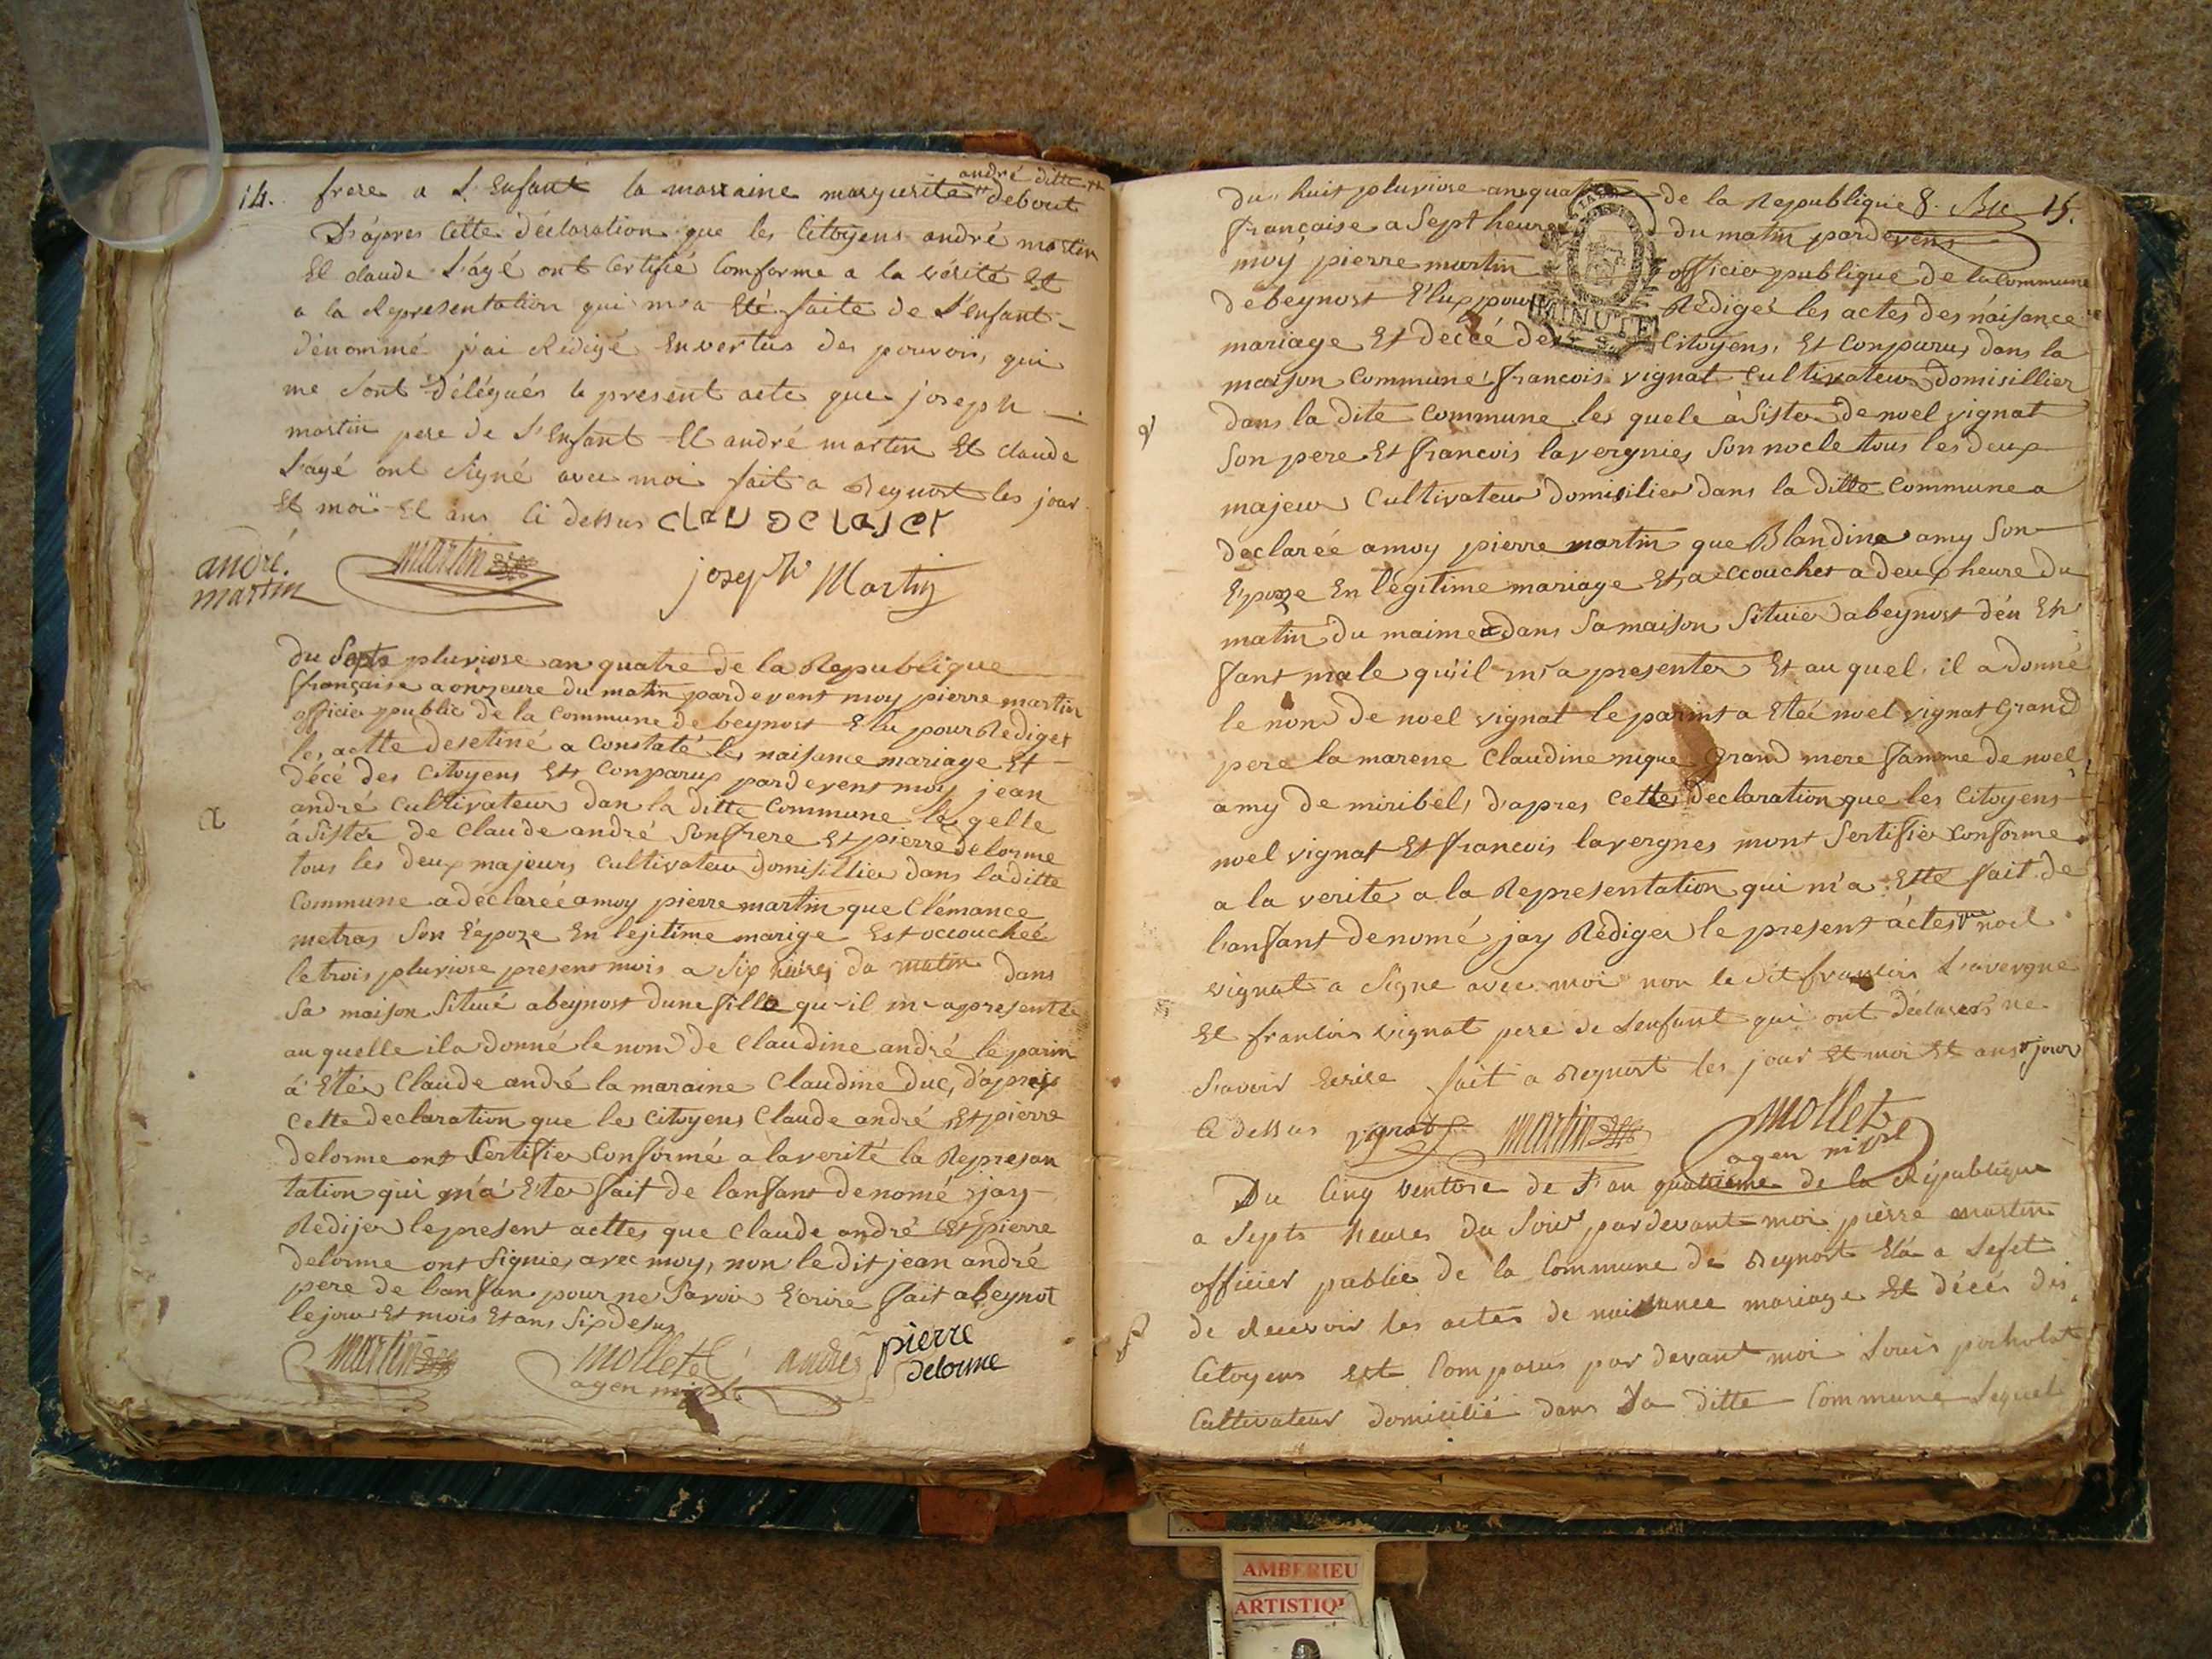 14.
frere a L'Enfant la marraine margurite debout
andré ditte
D'âpres Cette déclaration que les Citoyens andré martin
Et claude L'ágé ont Certifié Comforme a la vérité Et
a la Representation qui m'a Eté faite de L'enfant
dénommé j'ai Redigé En vertus des pouvoirs qui
me sont délégués le present acte que joseph
martin pere de L'Enfant Et andré martin Et claude
L'agé ont signé avec moi fait a Beynost les jour
Et moi Et ans Ci dessus
andré.
martin
martin
joseph Martin
du Septs pluviose an quatre de la Republique
française a onzeure du matin pardevent moy pierre martin
officier public de la Commune de beynost Elu pour Rediger
les actte desetiné a Constaté les naisance mariage Et
décé des Citoyens Est Conparus pardevent moy jean
andré Cultivateur dan la ditte Commune leqelle
a
ásister de Claude andré Son frere Et pierre delorme
tous les deux majeurs Cultivateur domisillier dans laditte
Commune a déclarée amoy pierre martin que Clémance
metras Son Epoze En lejitime marige Est accouchée
le trois pluviose present mois a Six heures du matin dans
Sa maison Situé abeynost dune fille qu-il m-a presente
au quelle il a donné le nom de Claudine andré le parin
á Eté Claude andré la maraine Claudine Duc, d'apres
Cette declaration que les Citoyens Claude andré Et pierre
delorme ont Sertifier Conformé a la verité la Represan
tation qui m'a Eter fait de lanfant denomé jay
Redijer le present acttes que Claude andré Et pierre
delorme ont Signie avec moy, non le dit jean andré
pere de lanfan pour ne Savoir Ecrire fait abeynot
le jour Et mois Et ans Sipdesus
martin
mollet
andré
pierre
delorme
agen mipl
15.
du huit pluviose an quatre de la Republique 8.
française a Sept heures du matin pardevens
moy pierre martin officier publique de la Commune
de beynost Elup pour Rédiger les actes des náisance
MINUTE
mariage Et deccé des Citoyens, Et Conparus dans la
maison Commune francois vignat Cultivateur Domisillier
dans la dite Commune les quele àsister de noel vignat
Son pere Et francois lavergnies Son nocle tous les deux
majeur Cultivateur domisilier dans la ditte Commune a
déclarée amoy pierre martin que Blandine amy Son
Epoze En légitime mariage Et a ccoucher a deux heure du
matin du maime dans Sa maison Situier abeynost d'én En
fant male qu'il m'a presenter Et au quel il a donné
le nom de noel vignat le parint a Eteé noel vignat Grand
pere la marene Claudine nique Grand mere famme de noel
amy de miribel, d'apres cettes declaration que les Citoyens
noel vignat Et francois lavergnes mont Sertifier Conforme
a la verite a la Representation qui m'a Etté fait de
lanfant denomé jay Rédiger le present áctes que noel
vignat a Signe avec moi non le dit francois Lavergne
Et francois vignat pere de Lenfant qui ont déclarer ne
Savoir Ecrire fait a Beynost les jour Et moi Et ans jour
Ci dessus vignat martin mollet
agen mipl
Du Cinq ventose de L'an quatrieme de la République
a Septs heures du Soir pardevant moi pierre martin
officier public de la Commune de Beynost Elú a Lefet
de Recevoir les actes de naissance mariage Et décés des
Citoyens Est Comparus par devant moi Louis pocholat
Cultivateur domicilié dans La ditte Commune Lequel
AMBERIEU
ARTISTIQ